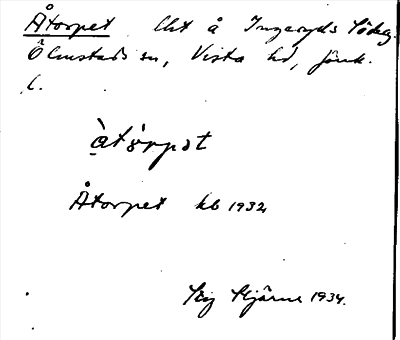 Åtorpet Lht å Ingeryds Södreg.
Ölmstads sn, Vista hd, Jönk.
l.
àtò̀rpət
Åtorpet kb 1932
Stig Hjärne 1934.